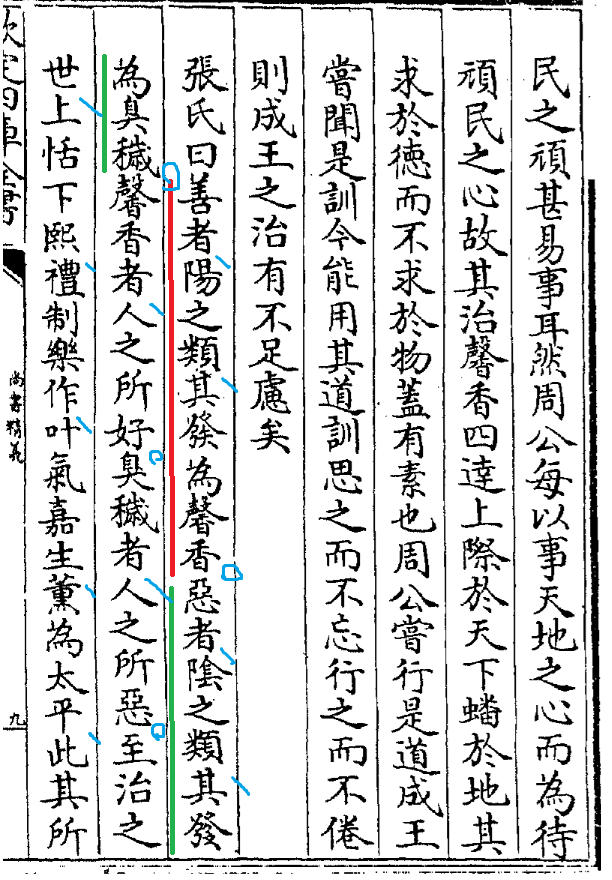 民之頑甚易事耳然周公每以事天地之心而為待
頑民之心故其治馨香四達上際於天下蟠於地其
求於德而不求於物蓋有素也周公嘗行是道成王
嘗聞是訓今能用其道訓思之而不忘行之而不倦
則成王之治有不足慮矣
張氏曰善者陽之類其發為馨香惡者陰之類其發
為臭穢馨香者人之所好臭穢者人之所惡至治之
世上恬下熙禮制樂作叶氣嘉生薰為太平此其所
欽定四庫全書
尚書精義
九